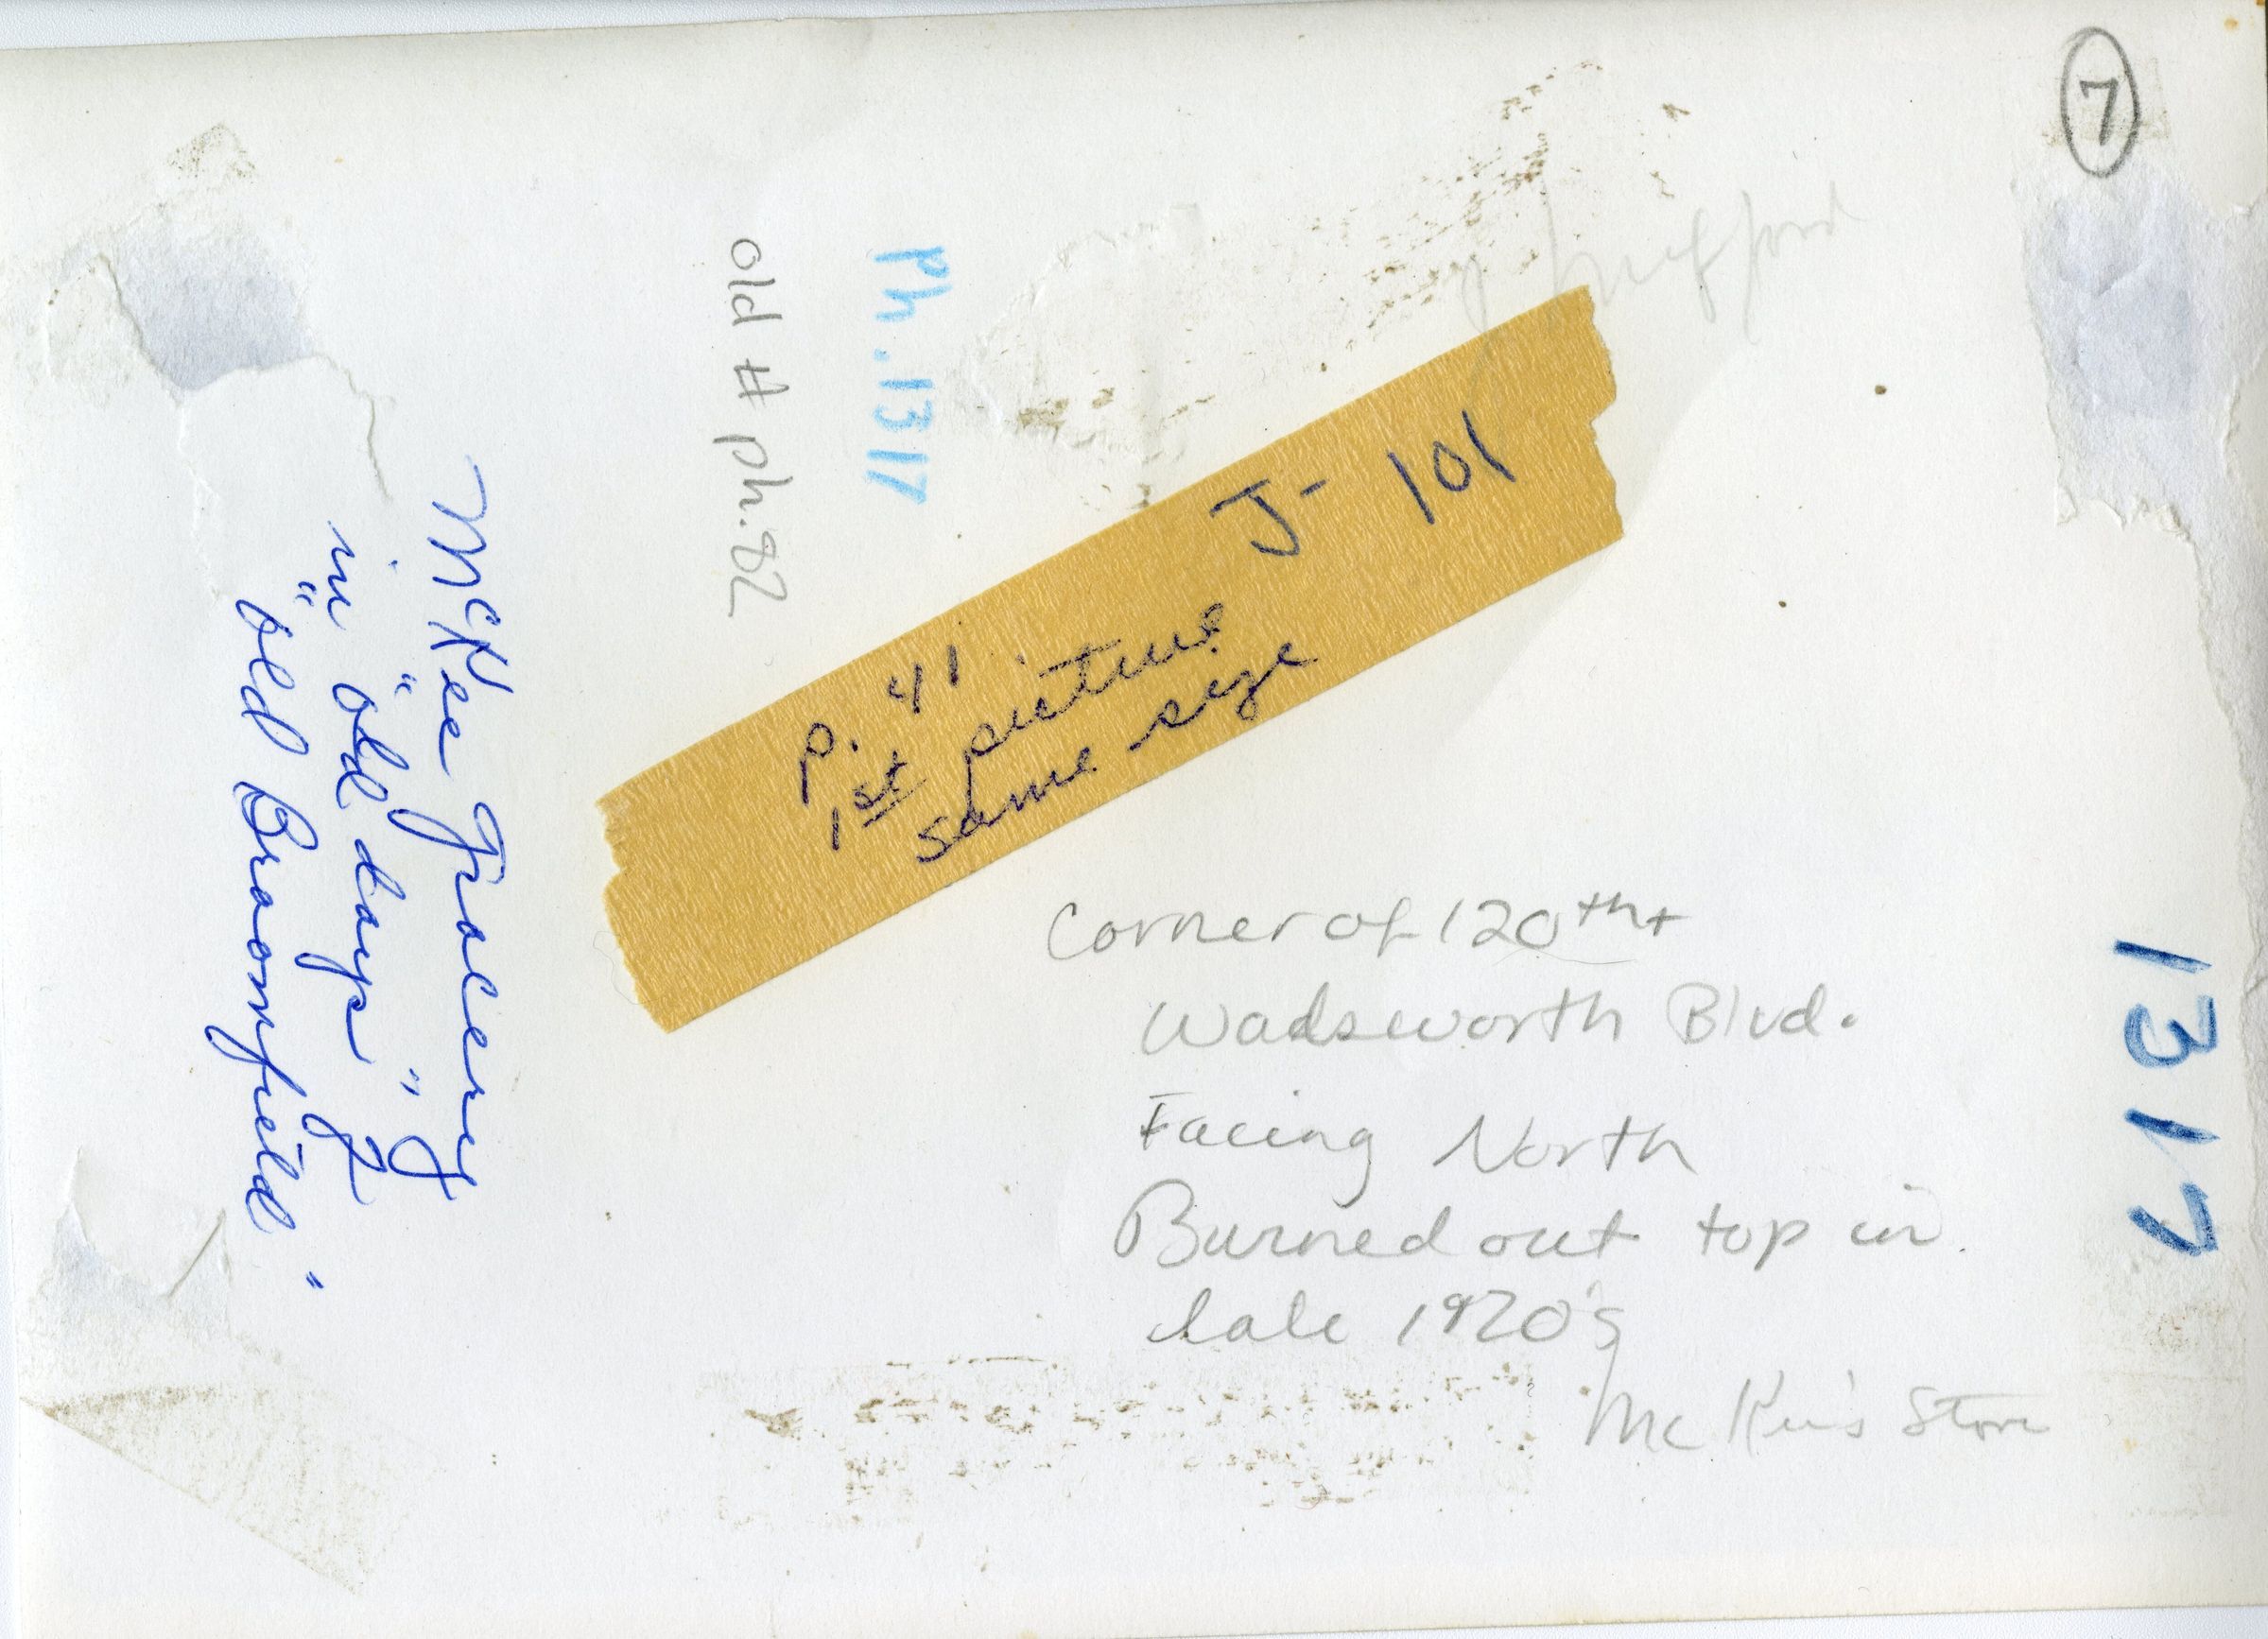 7
Ph.1317
old # ph.82
J- 101
p. 41
1st picture
same size
McKee Grocery
in "old days" of
"old Broomfield"
Corner of 120th +
Wadsworth Blvd.
Facing North
Burned out top in
late 1920's
McKee's Store
1317